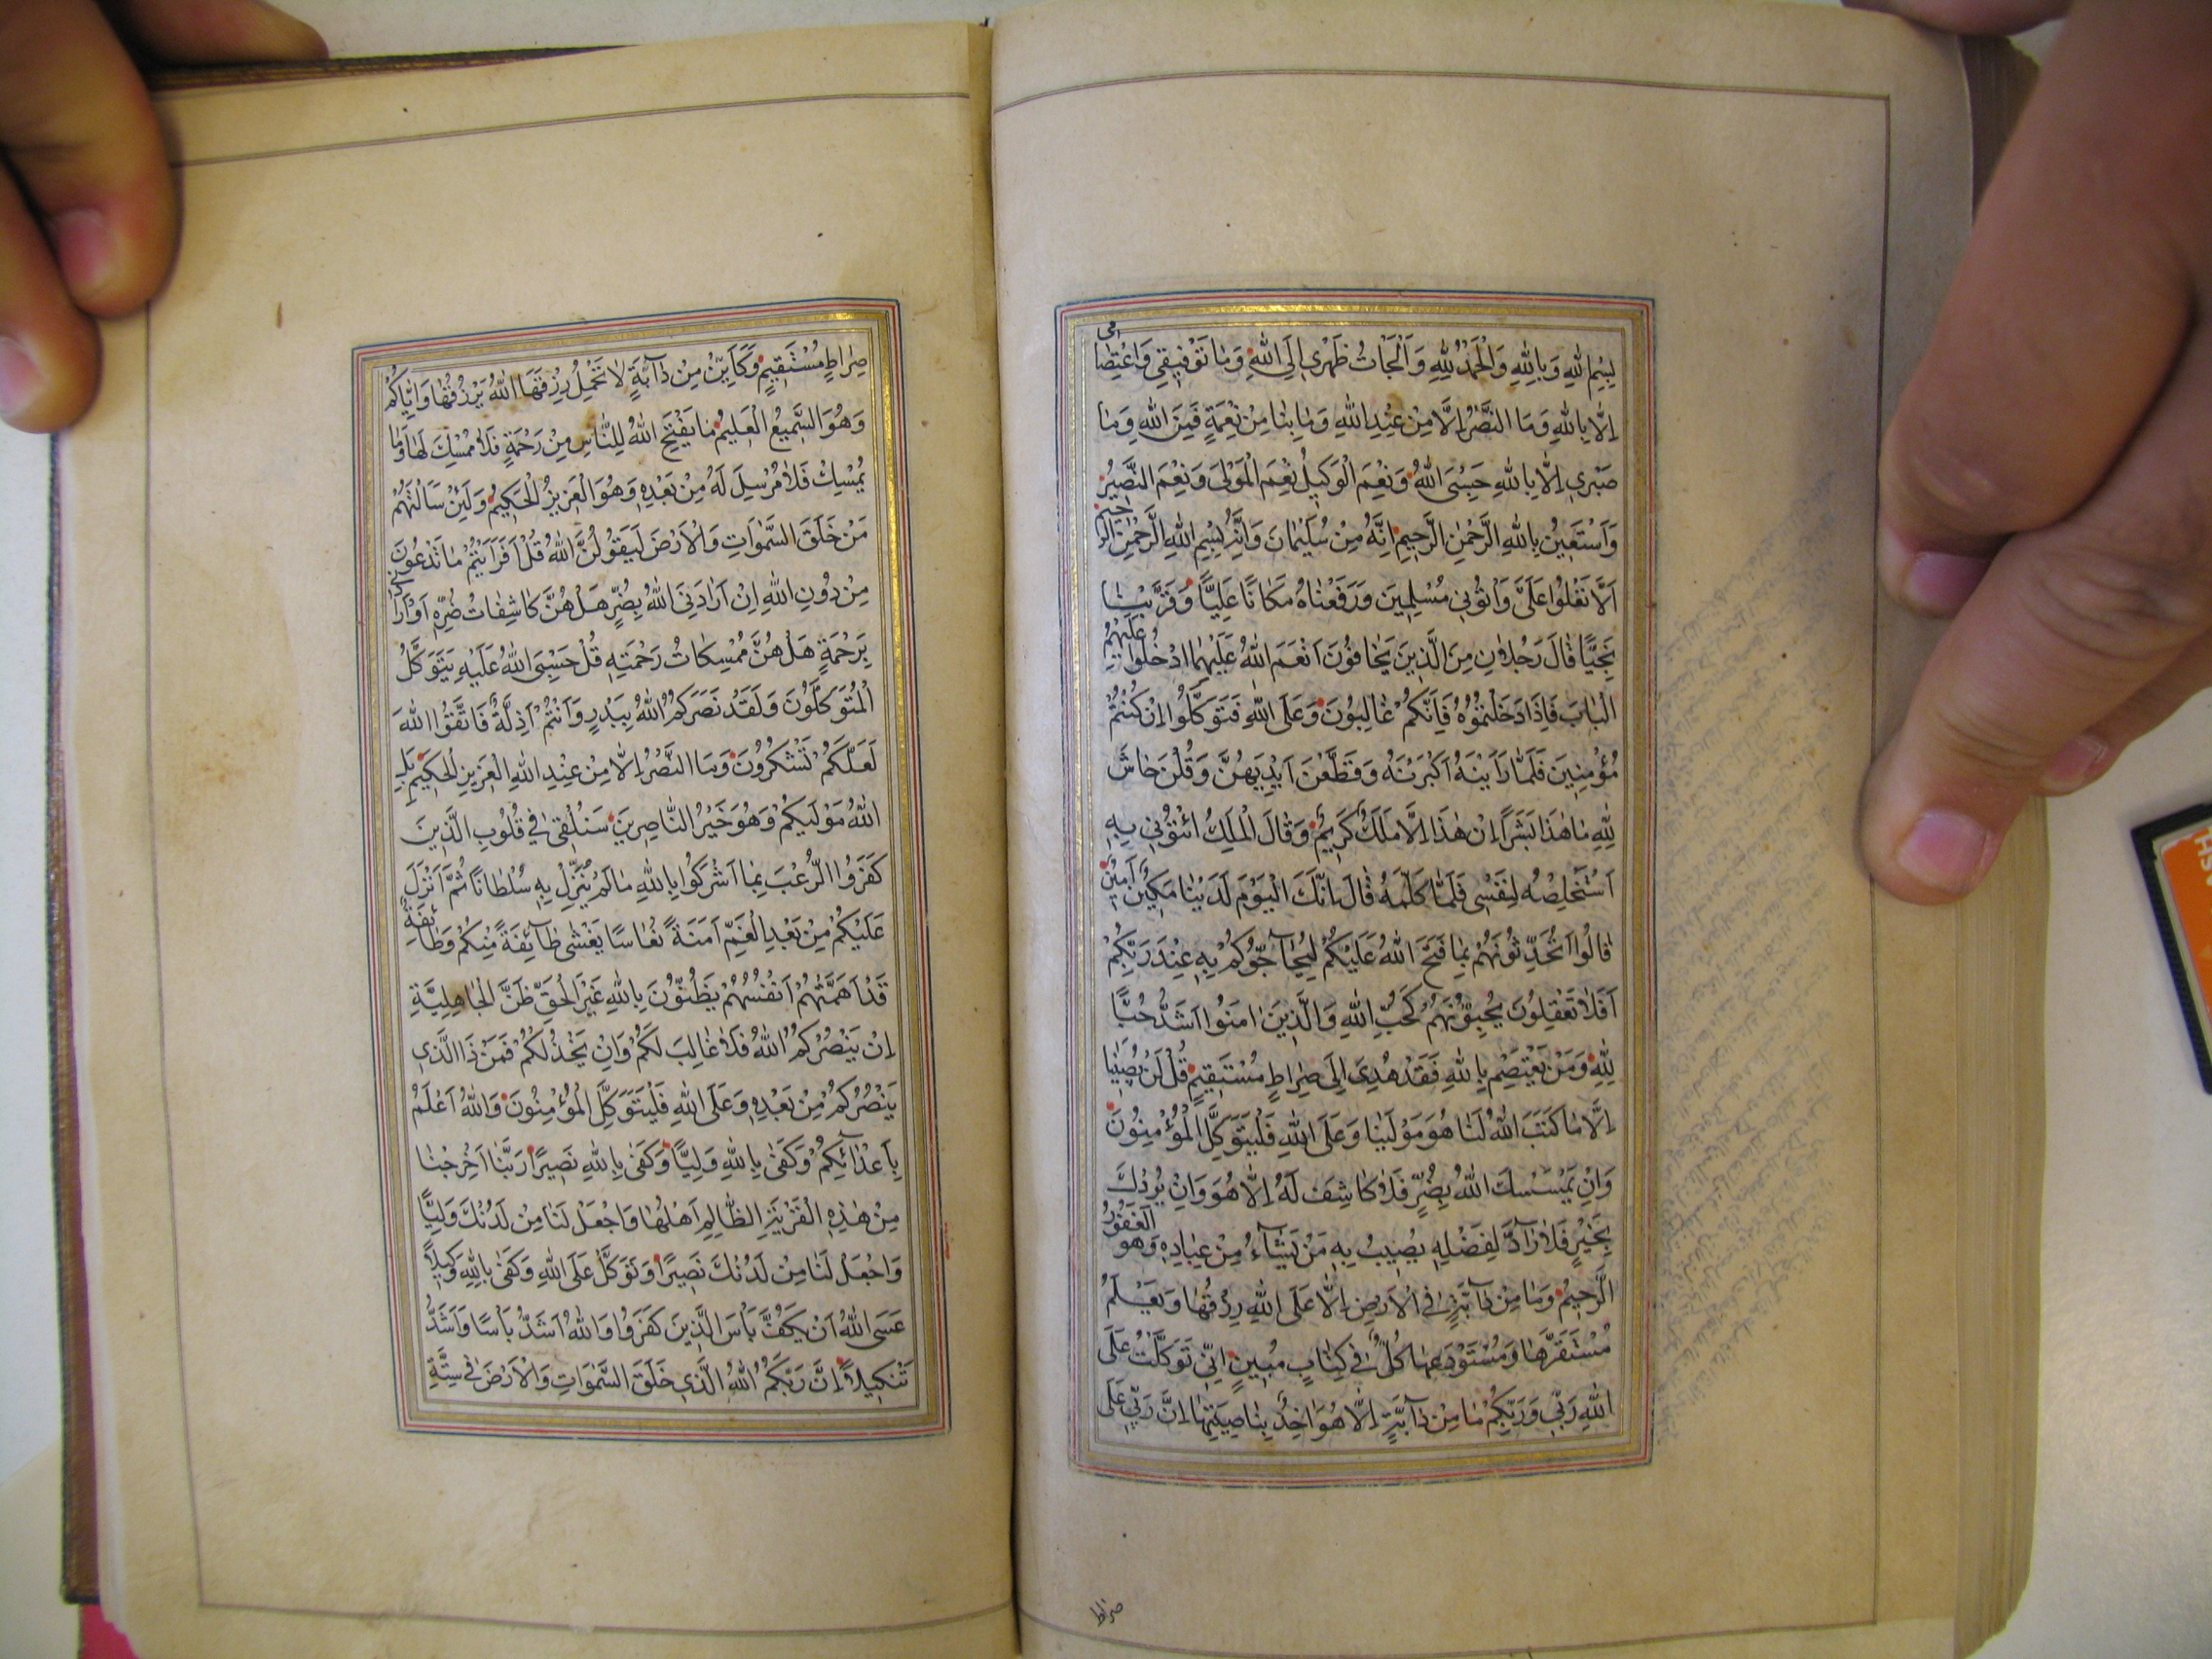 بِسْمِ اللهِ وَبِاللهِ وَالْحَمْدُ لِلّٰهِ وَاَلْجَأْتُ ظَهْرِي اِلَى اللهِ وَمَا تَوْفِيقِي وَاعْتِصَامِي
اِلَّا بِاللهِ وَمَا النَّصْرُ اِلَّا مِنْ عِنْدِ اللهِ وَمَا بِنَا مِنْ نِعْمَةٍ فَمِنَ اللهِ وَمَا
صَبْرِي اِلَّا بِاللهِ حَسْبِيَ اللهُ وَنِعْمَ الْوَكِيلُ نِعْمَ الْمَوْلَى وَنِعْمَ النَّصِيرُ
وَاَسْتَعِينُ بِاللهِ الرَّحْمٰنِ الرَّحِيمِ اِنَّهُ مِنْ سُلَيْمَانَ وَاِنَّهُ بِسْمِ اللهِ الرَّحْمٰنِ الرَّحِيمِ
اَلَّا تَعْلُوا عَلَيَّ وَاْتُونِي مُسْلِمِينَ وَرَفَعْنَاهُ مَكَانًا عَلِيًّا وَقَرَّبْنَاهُ
نَجِيًّا قَالَ رَجُلَانِ مِنَ الَّذِينَ يَخَافُونَ اَنْعَمَ اللهُ عَلَيْهِمَا ادْخُلُوا عَلَيْهِمُ
الْبَابَ فَاِذَا دَخَلْتُمُوهُ فَاِنَّكُمْ غَالِبُونَ وَعَلَى اللهِ فَتَوَكَّلُوا اِنْ كُنْتُمْ
مُؤْمِنِينَ فَلَمَّا رَاَيْنَهُ اَكْبَرْنَهُ وَقَطَّعْنَ اَيْدِيَهُنَّ وَقُلْنَ حَاشَ
لِلّٰهِ مَا هٰذَا بَشَرًا اِنْ هٰذَا اِلَّا مَلَكٌ كَرِيمٌ وَقَالَ الْمَلِكُ ائْتُونِي بِهِ
اَسْتَخْلِصْهُ لِنَفْسِي فَلَمَّا كَلَّمَهُ قَالَ اِنَّكَ الْيَوْمَ لَدَيْنَا مَكِينٌ اَمِينٌ
قَالُوا اَتُحَدِّثُونَهُمْ بِمَا فَتَحَ اللهُ عَلَيْكُمْ لِيُحَاجُّوكُمْ بِهِ عِنْدَ رَبِّكُمْ
اَفَلَا تَعْقِلُونَ يُحِبُّونَهُمْ كَحُبِّ اللهِ وَالَّذِينَ اٰمَنُوا اَشَدُّ حُبًّا
لِلّٰهِ وَمَنْ يَعْتَصِمْ بِاللهِ فَقَدْ هُدِيَ اِلَى صِرَاطٍ مُسْتَقِيمٍ قُلْ لَنْ يُصِيبَنَا
اِلَّا مَا كَتَبَ اللهُ لَنَا هُوَ مَوْلٰينَا وَعَلَى اللهِ فَلْيَتَوَكَّلِ الْمُؤْمِنُونَ
وَاِنْ يَمْسَسْكَ اللهُ بِضُرٍّ فَلَا كَاشِفَ لَهُ اِلَّا هُوَ وَاِنْ يُرِدْكَ
بِخَيْرٍ فَلَا رَادَّ لِفَضْلِهِ يُصِيبُ بِهِ مَنْ يَشَاءُ مِنْ عِبَادِهِ وَهُوَ الْغَفُورُ
الرَّحِيمُ وَمَا مِنْ دَابَّةٍ فِي الْاَرْضِ اِلَّا عَلَى اللهِ رِزْقُهَا وَيَعْلَمُ
مُسْتَقَرَّهَا وَمُسْتَوْدَعَهَا كُلٌّ فِي كِتَابٍ مُبِينٍ اِنِّي تَوَكَّلْتُ عَلَى
اللهِ رَبِّي وَرَبِّكُمْ مَا مِنْ دَابَّةٍ اِلَّا هُوَ اٰخِذٌ بِنَاصِيَتِهَا اِنَّ رَبِّي عَلَى
صراط
صِرَاطٍ مُسْتَقِيمٍ وَكَاَيِّنْ مِنْ دَابَّةٍ لَا تَحْمِلُ رِزْقَهَا اللهُ يَرْزُقُهَا وَاِيَّاكُمْ
وَهُوَ السَّمِيعُ الْعَلِيمُ مَا يَفْتَحِ اللهُ لِلنَّاسِ مِنْ رَحْمَةٍ فَلَا مُمْسِكَ لَهَا وَمَا
يُمْسِكْ فَلَا مُرْسِلَ لَهُ مِنْ بَعْدِهِ وَهُوَ الْعَزِيزُ الْحَكِيمُ وَلَئِنْ سَاَلْتَهُمْ
مَنْ خَلَقَ السَّمٰوَاتِ وَالْاَرْضَ لَيَقُولُنَّ اللهُ قُلْ اَفَرَاَيْتُمْ مَا تَدْعُونَ
مِنْ دُونِ اللهِ اِنْ اَرَادَنِيَ اللهُ بِضُرٍّ هَلْ هُنَّ كَاشِفَاتُ ضُرِّهِ اَوْ اَرَادَنِي
بِرَحْمَةٍ هَلْ هُنَّ مُمْسِكَاتُ رَحْمَتِهِ قُلْ حَسْبِيَ اللهُ عَلَيْهِ يَتَوَكَّلُ
الْمُتَوَكِّلُونَ وَلَقَدْ نَصَرَكُمُ اللهُ بِبَدْرٍ وَاَنْتُمْ اَذِلَّةٌ فَاتَّقُوا اللهَ
لَعَلَّكُمْ تَشْكُرُونَ وَمَا النَّصْرُ اِلَّا مِنْ عِنْدِ اللهِ الْعَزِيزِ الْحَكِيمِ بَلِ
اللهُ مَوْلٰيكُمْ وَهُوَ خَيْرُ النَّاصِرِينَ سَنُلْقِي فِي قُلُوبِ الَّذِينَ
كَفَرُوا الرُّعْبَ بِمَا اَشْرَكُوا بِاللهِ مَا لَمْ يُنَزِّلْ بِهِ سُلْطَانًا ثُمَّ اَنْزَلَ
عَلَيْكُمْ مِنْ بَعْدِ الْغَمِّ اَمَنَةً نُعَاسًا يَغْشٰى طَائِفَةً مِنْكُمْ وَطَائِفَةٌ
قَدْ اَهَمَّتْهُمْ اَنْفُسُهُمْ يَظُنُّونَ بِاللهِ غَيْرَ الْحَقِّ ظَنَّ الْجَاهِلِيَّةِ
اِنْ يَنْصُرْكُمُ اللهُ فَلَا غَالِبَ لَكُمْ وَاِنْ يَخْذُلْكُمْ فَمَنْ ذَا الَّذِي
يَنْصُرُكُمْ مِنْ بَعْدِهِ وَعَلَى اللهِ فَلْيَتَوَكَّلِ الْمُؤْمِنُونَ وَاللهُ اَعْلَمُ
بِاَعْدَائِكُمْ وَكَفٰى بِاللهِ وَلِيًّا وَكَفٰى بِاللهِ نَصِيرًا رَبَّنَا اَخْرِجْنَا
مِنْ هٰذِهِ الْقَرْيَةِ الظَّالِمِ اَهْلُهَا وَاجْعَلْ لَنَا مِنْ لَدُنْكَ وَلِيًّا
وَاجْعَلْ لَنَا مِنْ لَدُنْكَ نَصِيرًا وَتَوَكَّلْ عَلَى اللهِ وَكَفٰى بِاللهِ وَكِيلًا
عَسَى اللهُ اَنْ يَكُفَّ بَأْسَ الَّذِينَ كَفَرُوا وَاللهُ اَشَدُّ بَأْسًا وَاَشَدُّ
تَنْكِيلًا اِنَّ رَبَّكُمُ اللهُ الَّذِي خَلَقَ السَّمٰوَاتِ وَالْاَرْضَ فِي سِتَّةِ